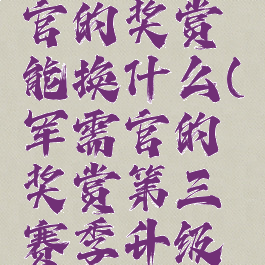 官的奖赏
能换什么(
军需官的
奖赏第三
赛季升级